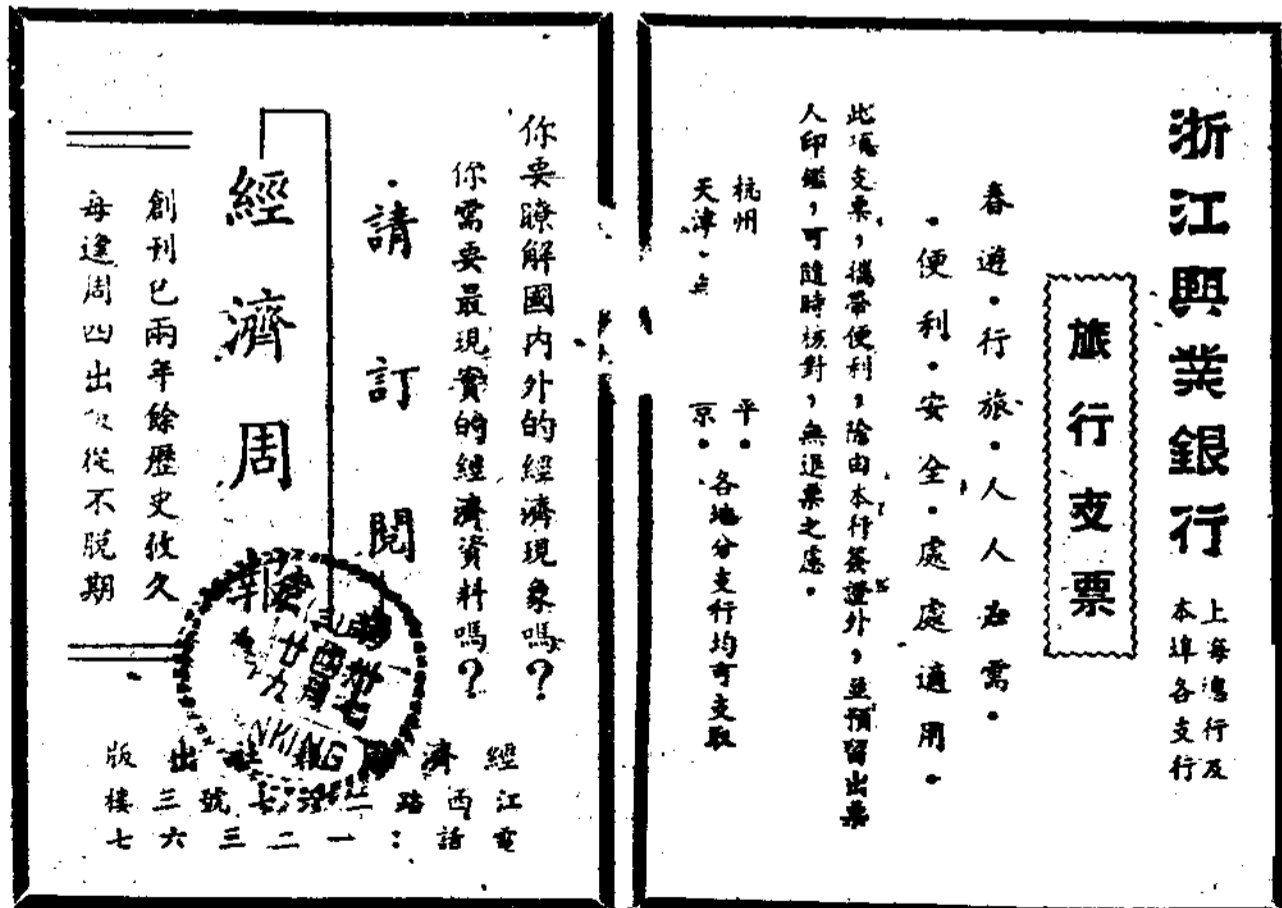 浙江興業銀行
上海總行及
本埠各支行
旅行支票
春遊・行旅・人人必需・
・便利・安全・處處適用・
此項支票，攜帶便利，除由本行簽證外，並預留出票
人印鑑，可隨時核對，無退票之虞。
杭州
天津・
平・
京・
各地分支行均可支取
你要瞭解國內外的經濟現象嗎？
你需要最現實的經濟資料嗎？
・請訂閱
經濟周報
創刊已兩年餘歷史攸久
每逢周四出版從不脫期
經濟周報社出版
江西路一二七號三樓
電話：一二三六七
NKING